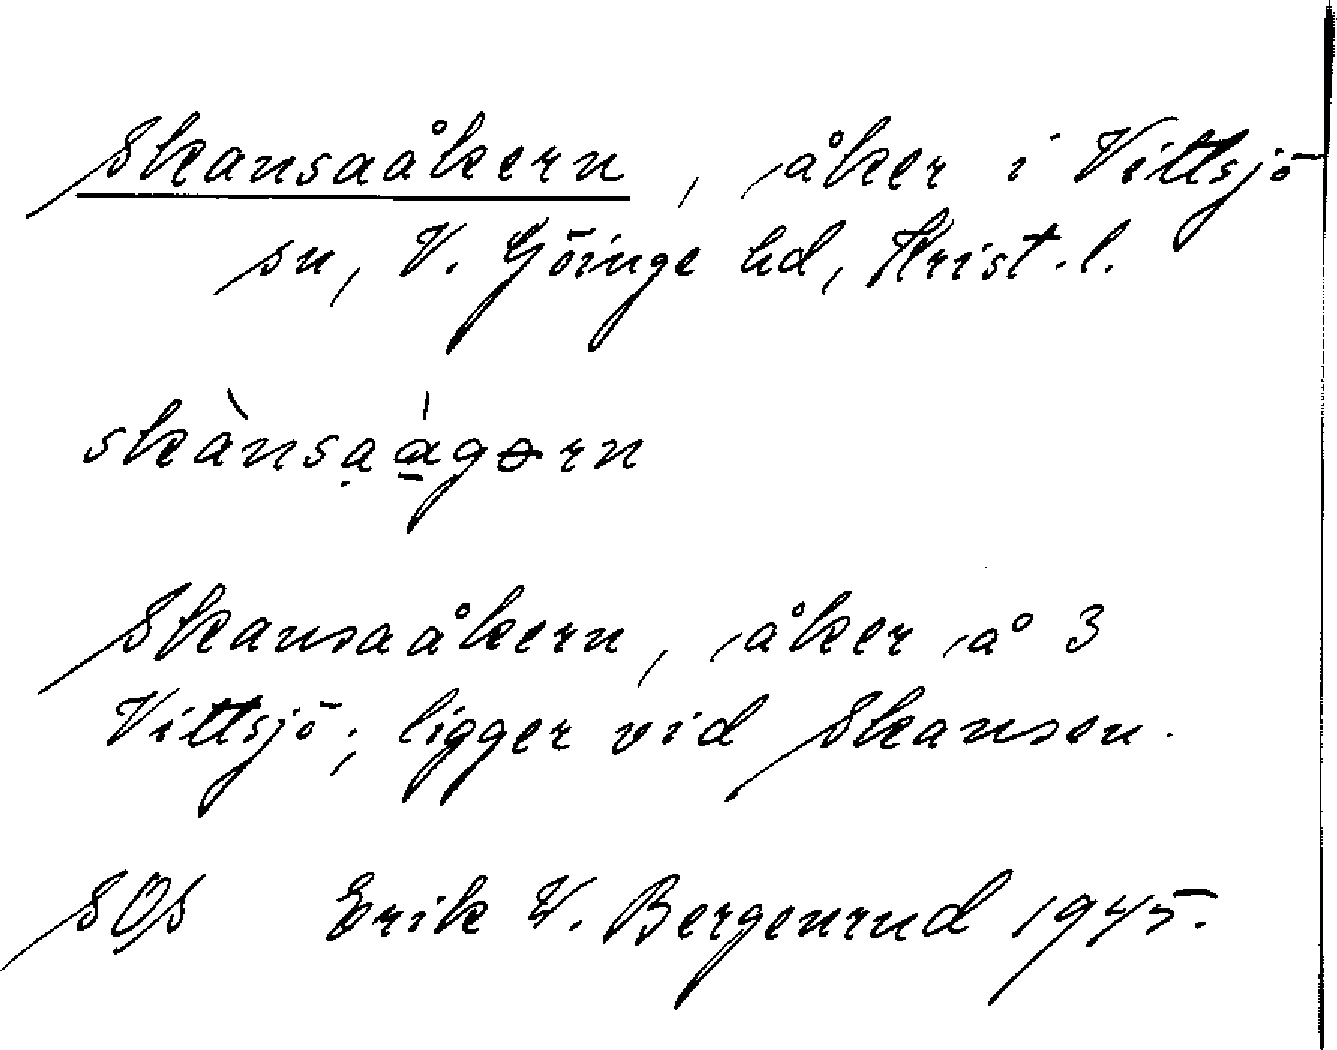 Skansaåkern, åker i Vittsjö
sn, V. Göinge hd, Krist. l.
skànsạá̱gərn
Skansaåkern, åker å 3
Vittsjö; ligger vid Skansen.
SOS Erik W. Bergenrud 1945.